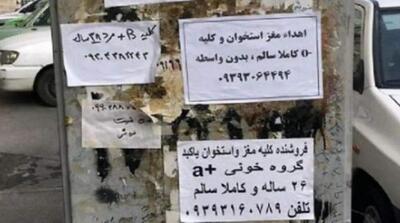 کلیه B+ مرد ۳۹ ساله
اهداء مغز استخوان و کلیه
O- کاملا سالم، بدون واسطه
۰۹۳۹۳۰۶۴۴۹۴
فروشنده کلیه مغز واستخوان یاکبد
گروه خونی a+
۲۶ ساله و کاملا سالم
تلفن ۰۹۳۹۳۱۶۰۷۸۹